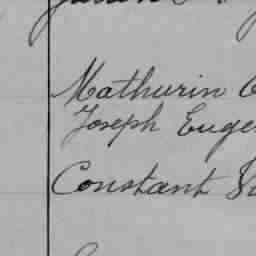 Mathurin
Joseph Euge
Constant